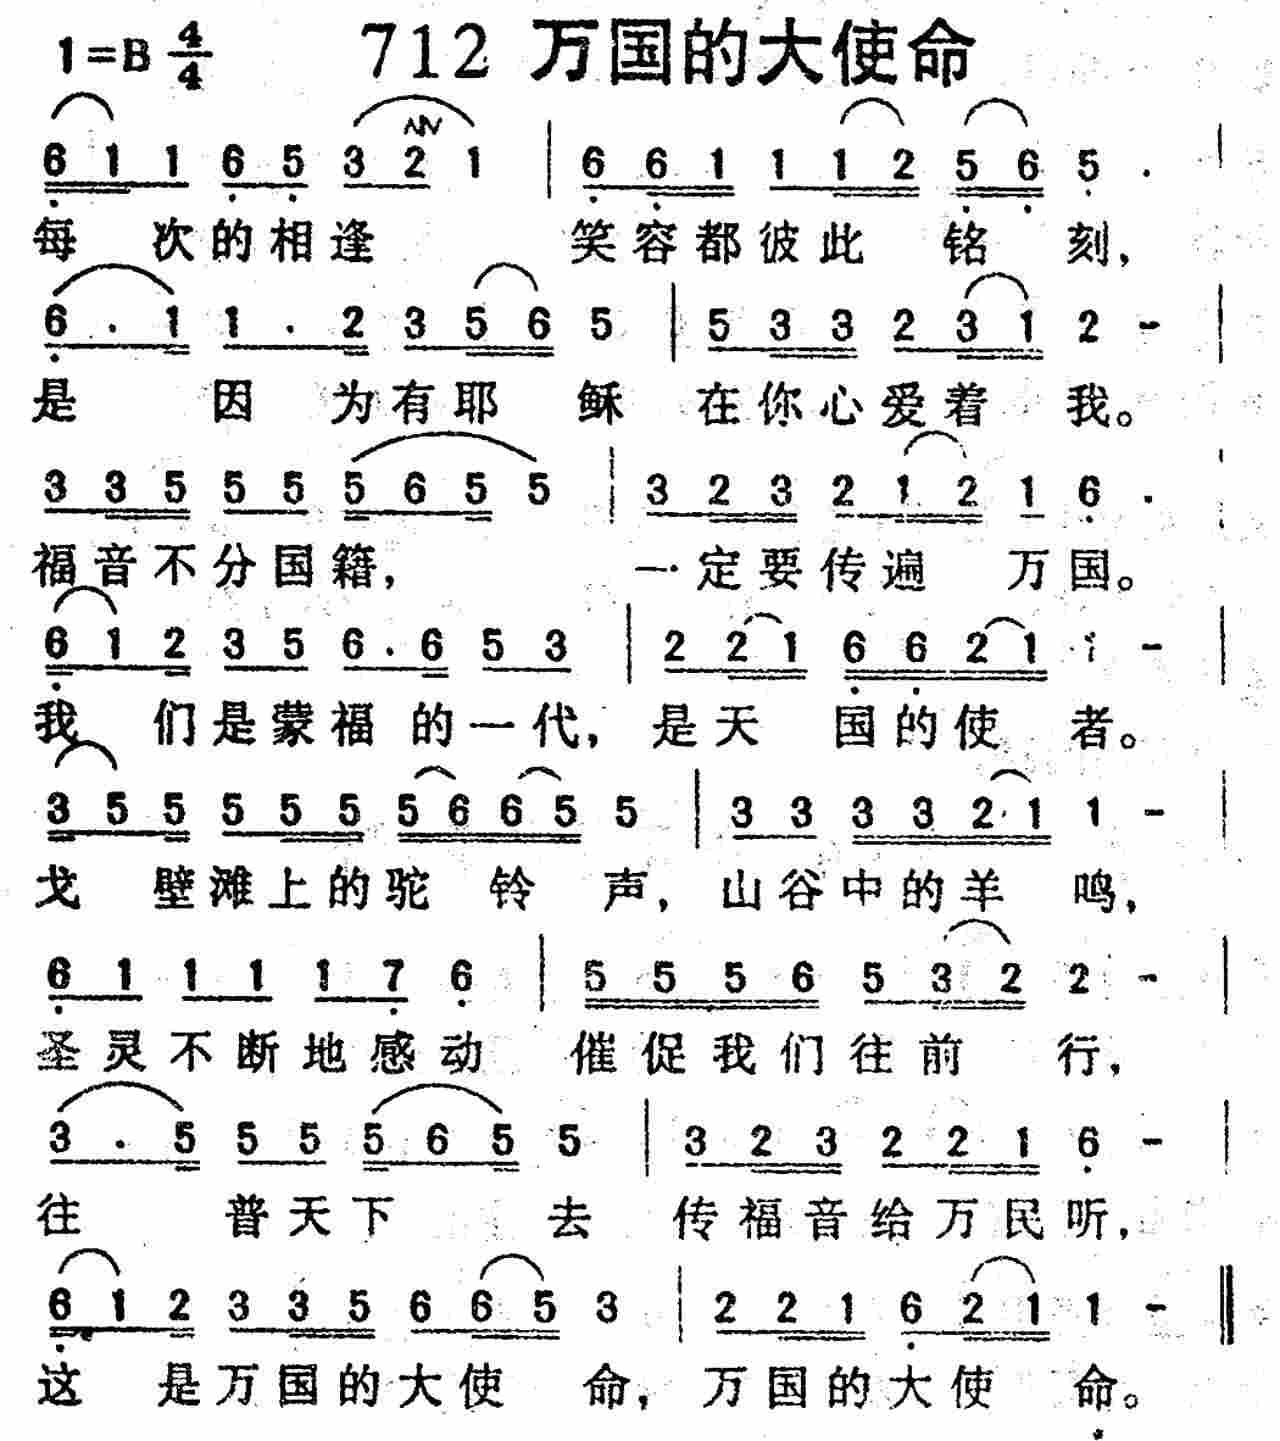 1=B 4/4 712 万国的大使命
6 1 1 6 5 3 2 1 | 6 6 1 1 1 2 5 6 5 . |
每 次的相逢 笑容都彼此 铭 刻,
6 . 1 1 . 2 3 5 6 5 | 5 3 3 2 3 1 2 - |
是 因 为有耶 稣 在你心爱着 我。
3 3 5 5 5 5 6 5 5 | 3 2 3 2 1 2 1 6 . |
福音不分国籍, 一定要传遍 万国。
6 1 2 3 5 6 . 6 5 3 | 2 2 1 6 6 2 1 1 - |
我 们是蒙福 的一代, 是天 国的使 者。
3 5 5 5 5 5 5 6 6 5 5 | 3 3 3 3 2 1 1 - |
戈 壁滩上的驼 铃 声, 山谷中的羊 鸣,
6 1 1 1 1 7 6 | 5 5 5 6 5 3 2 2 - |
圣灵不断地感动 催促我们往前 行,
3 . 5 5 5 5 6 5 5 | 3 2 3 2 2 1 6 - |
往 普天下 去 传福音给万民听,
6 1 2 3 3 5 6 6 5 3 | 2 2 1 6 2 1 1 - ‖
这 是万国的大使 命, 万国的大使 命。